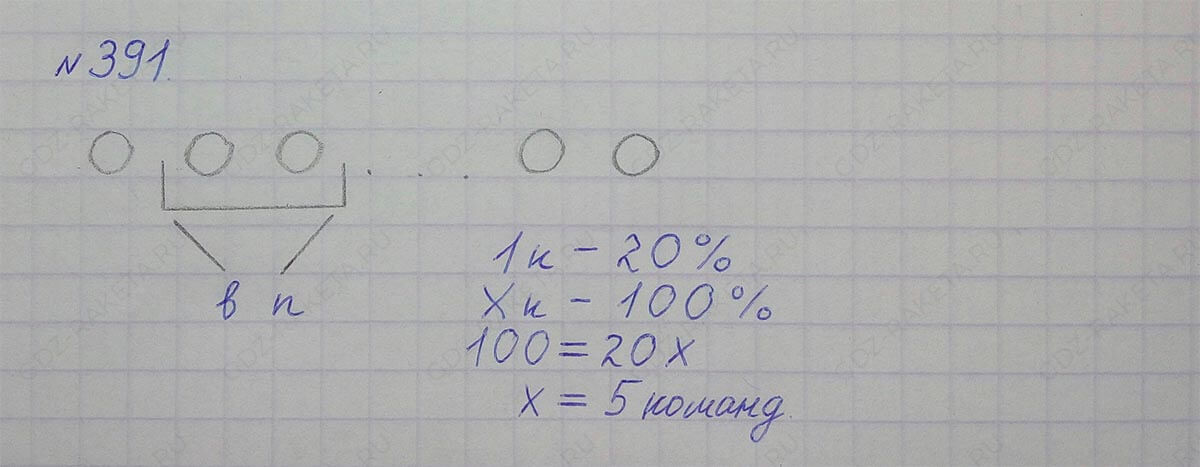 №391.
в п
1к - 20%
Xк - 100%
100 = 20x
x = 5 команд.
GDZ-RAKETA.RU